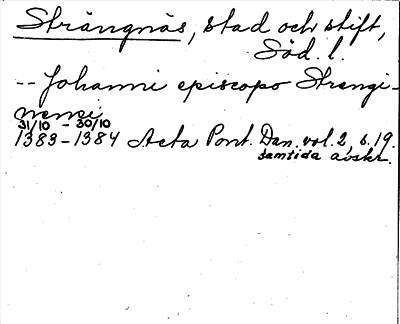 Strängnäs, stad och stift,
Söd. l.
-- Johanni episcopo Strengi-
nensi
31/10 - 30/10
1383-1384 Acta Pont. Dan. vol. 2, s. 19.
samtida avskr.